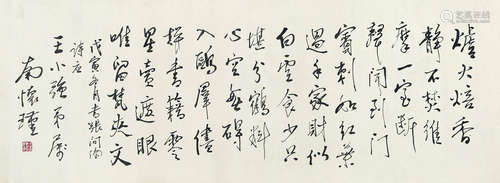 爐火焙香
靜不焚維
摩一室斷
聲聞到門
賓刺如紅葉
過手家財似
白雲食少只
堪分鶴料
心空無礙
入鷗羣儘
書籍零
星賣遮眼
唯留梵夾文
戊寅冬月書張問陶
詩應
王小強弟屬
南懷瑾